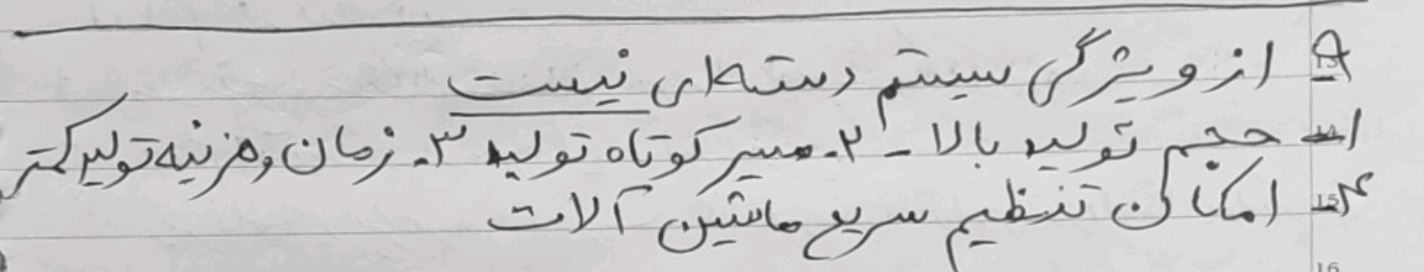 ۵ از ویژگی سیستم دسته‌ای نیست
۱- حجم تولید بالا - ۲. مسیر کوتاه تولید ۳. زمان و هزینه تولید کمتر
۴- امکان تنظیم سریع ماشین آلات
16